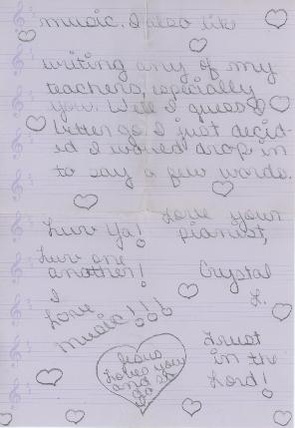 music. I also like
writing any of my
teachers, especially
you. Well I guess I
better go I just decid-
ed I would drop in
to say a few words.
Love your
pianist,
Crystal
L.
Luv Ya!
Luv one
another!
I
Love
music!!!
Jesus
Loves you
and so
do
I
Trust
in the
Lord!